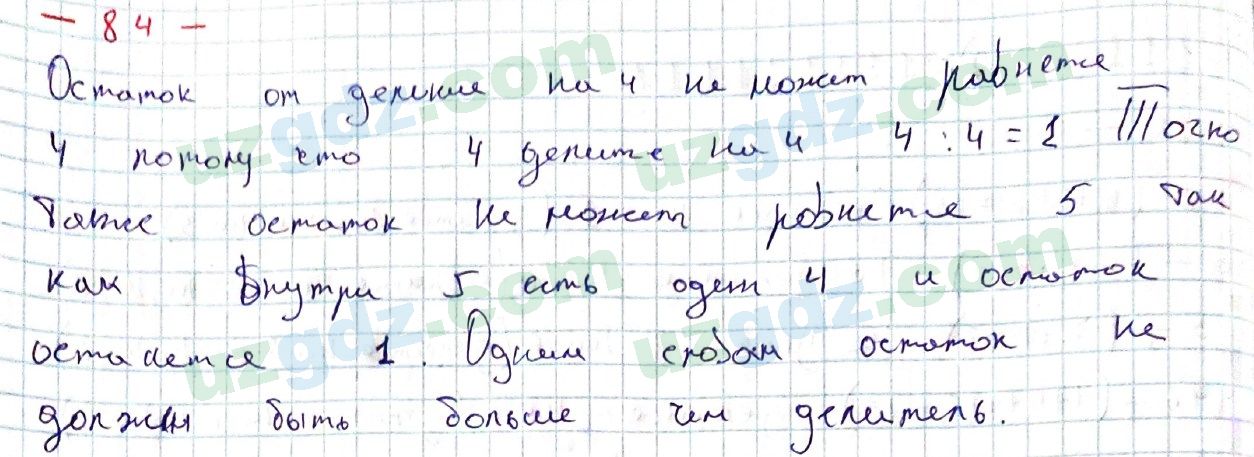 — 84 —
Остаток от деление на 4 не может равнется
4 потому что 4 делите на 4 4 : 4 = 1 Точно
также остаток не может равнется 5 так
как внутри 5 есть один 4 и остаток
остается 1. Одним словом остаток не
должен быть больше чем делитель.
uzgdz.com
uzgdz.com
uzgdz.com
uzgdz.com